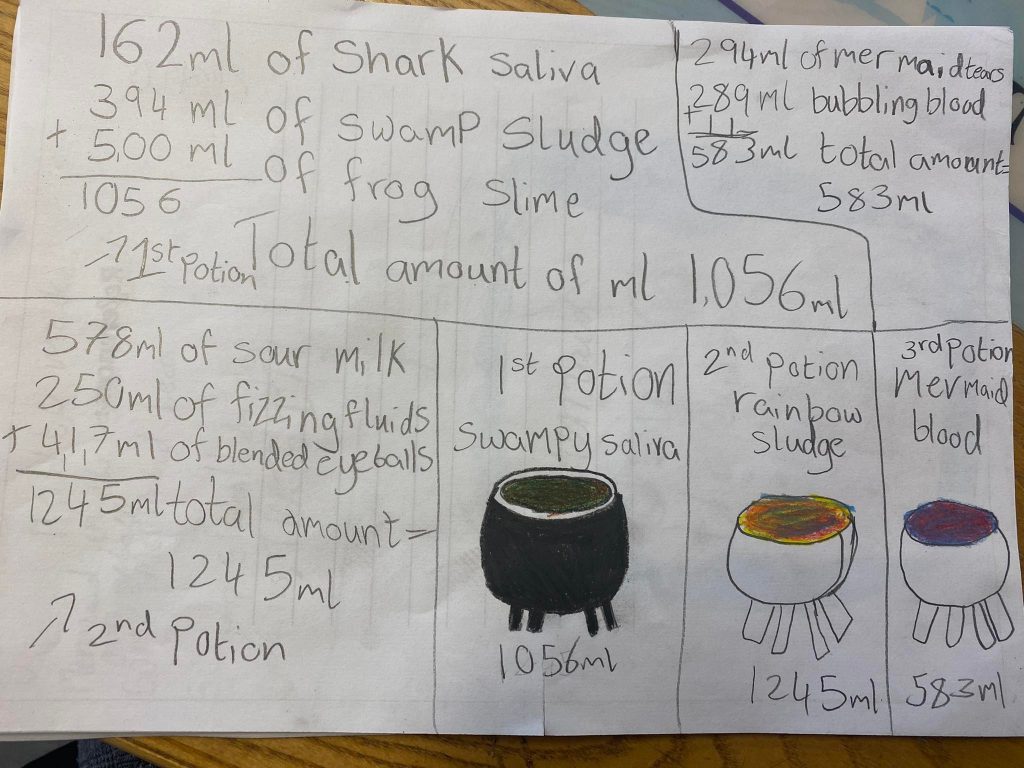 162ml of Shark Saliva
394 ml of swamp Sludge
+ 500 ml of frog Slime
1056
1st Potion
Total amount of ml 1,056ml
294ml of mermaid tears
+ 289ml bubbling blood
11
583ml total amount=
583ml
578ml of sour milk
250ml of fizzing fluids
+ 417ml of blended eyeballs
11
1245ml total amount=
1245ml
2nd Potion
1st Potion
swampy saliva
1056ml
2nd Potion
rainbow
sludge
1245ml
3rd Potion
Mermaid
blood
583ml